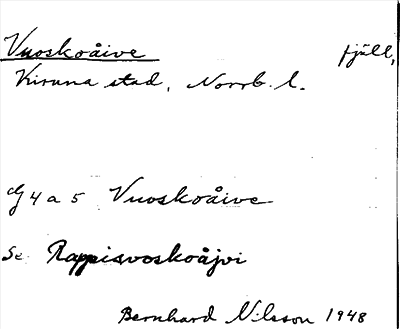 Vuoskoåive fjäll,
Kiruna stad, Norrb. l.
4 a 5 Vuoskoåive
Se Rappisvoskoåjvi
Bernhard Nilsson 1948